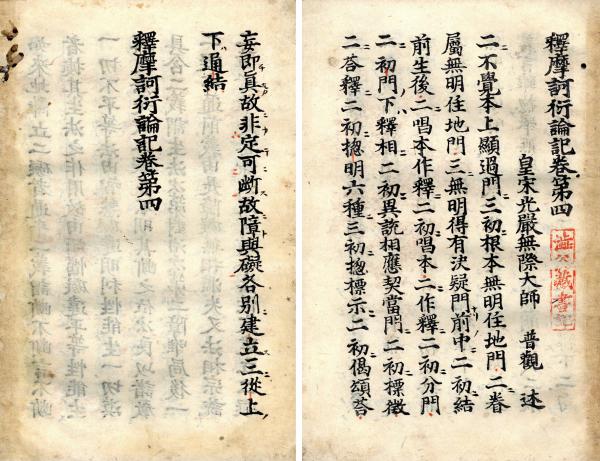 釋摩訶衍論記卷第四
皇宋光嚴無際大師 普觀 述
二不覺本上顯過門三初根本無明住地門二卷
屬無明住地門三無明得有決疑門前中二初結
前生後二唱本作釋二初唱本二作釋二初分門
二初門下釋相二初異說相應契當門二初標徵
二荅釋二初揔明六種三初揔標示二初偈頌荅
妄即真故非定可斷故障與礙各別建立三從上
下通結
釋摩訶衍論記卷第四